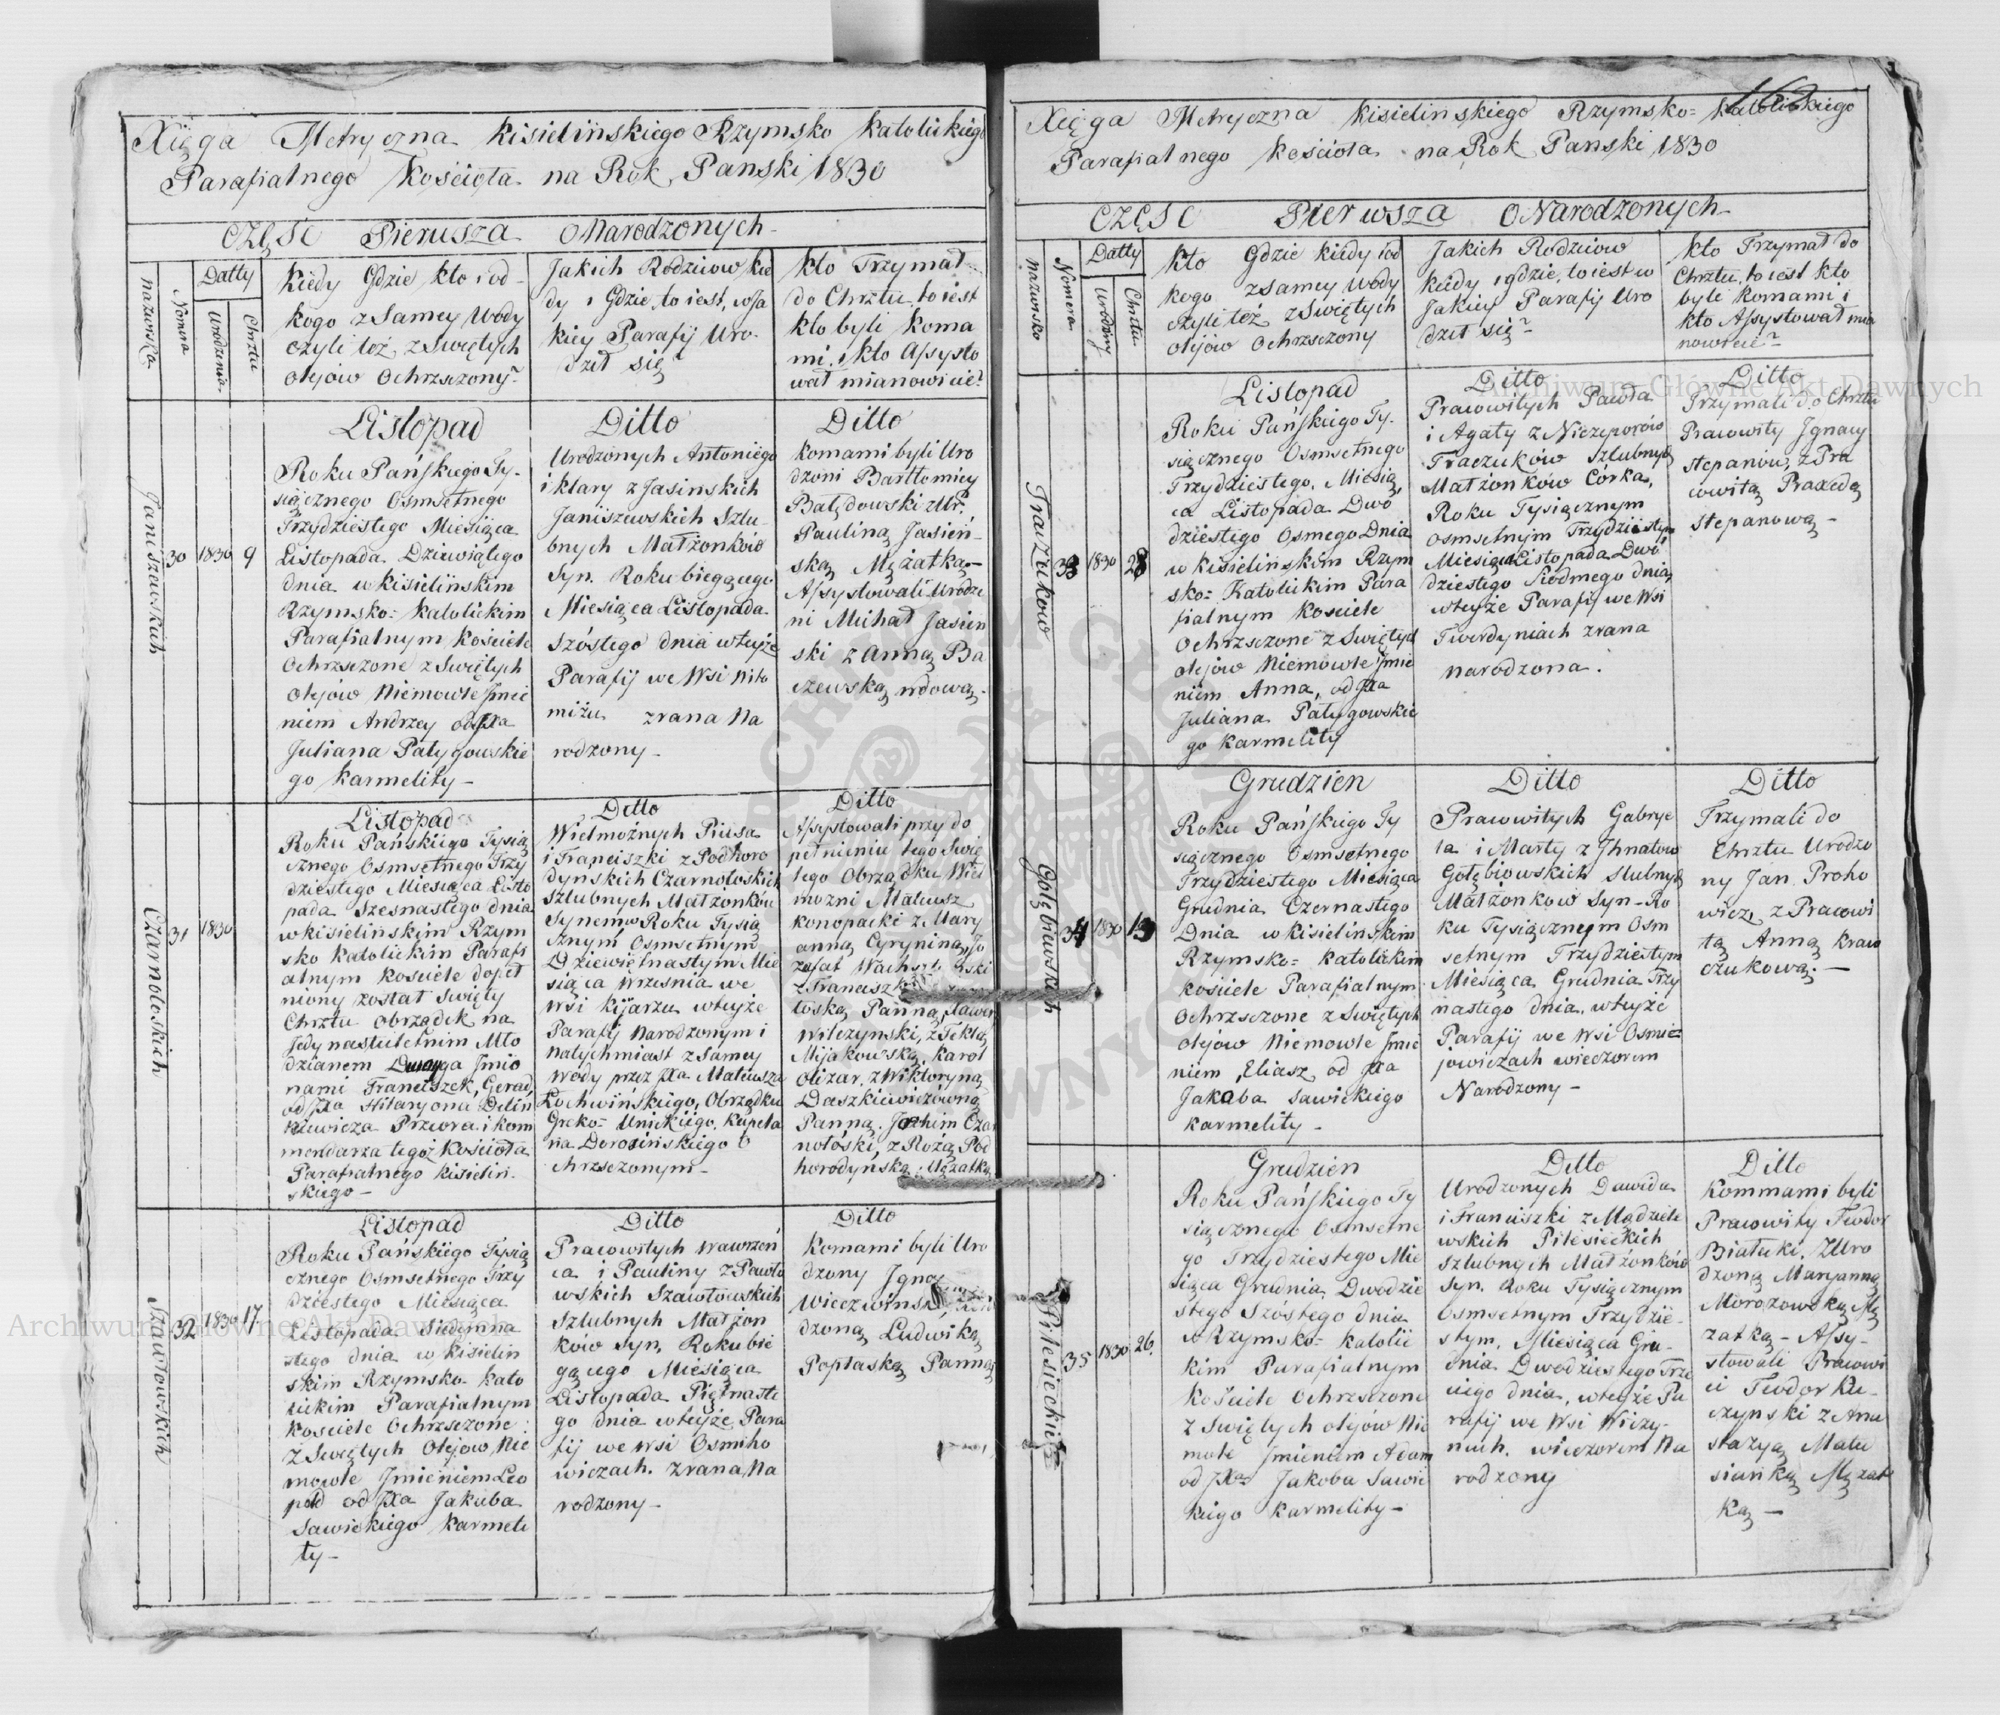 Xięga Metryczna Kisielińskiego Rzymsko Katolickiego
Parafialnego Kościoła na Rok Panski 1830
CZĘŚĆ Pierwsza O Narodzonych
nazwiska
Nomera
Datty
Urodzenia
Chrztu
Kiedy Gdzie kto i od
kogo z Samey Wody
czyli też z Swiętych
Olejów Ochrzszony?
Jakich Rodziców kie
dy i Gdzie, to iest, w Ja
kiey Parafij Uro-
dził się
kto Trzymał
do Chrztu to iest
kto byli Koma
mi i kto Assysto
wał mianowicie?
Janiszewskich
30
1830
9
Listopad
Roku Pańskiego Ty-
siącznego Osmsetnego
Trzydziestego Miesiąca
Listopada Dziewiątego
dnia w Kisielińskim
Rzymsko= Katolickim
Parafialnym Kościele
Ochrzszone z Swiętych
Olejów Niemowle Jmie
niem Andrzey od JXa
Juliana Patygowskie
go Karmelity-
Ditto
Urodzonych Antoniego
i Klary z Jasinskich
Janiszewskich Szlu-
bnych Małżonków
Syn. Roku biegącego
Miesiąca Listopada
Szóstego dnia w teyże
Parafij we Wsi Wito
niżu zrana Na
rodzony-
Ditto
Komami byli Uro
dzoni Bartłomiey
Bałędowski z Ur.
Pauliną Jasień-
ską Mężatką-
Assystowali Urodze
ni Michał Jasien
ski z Anną Ba
czewską wdową-
Czarnołoskich
31
1830
Listopad
Roku Pańskiego Tysią
cznego Osmsetnego Trzy
dziestego Miesiąca Listo
pada Szesnastego dnia
w Kisielińskim Rzym
sko Katolickim Parafi
alnym Kościele dopeł
niony został Swięty
Chrztu Obrządek na
Jedynastuletnim Mło
dzianem Dwoyga Jmio
nami Franciszek, Gerad,
od JXa Hilaryona Delin
kiewicza Przeora i kom
mendarza tegoż Kościoła
Parafialnego Kisieliń-
skiego-
Ditto
Wielmożnych Piusa
i Franciszki z Podhoro
dynskich Czarnołoskich
Szlubnych Małżonków
Synem w Roku Tysią
cznym Osmsetnym
Dziewiętnastym Mie
siąca Wrzesnia we
Wsi Kijarzu w teyże
Parafij Narodzonym i
Natychmiast z Samey
Wody przez JXa Mateusza
Łochwińskiego, Obrządku
Greko= Unickiego, Kapela
na Dorosińskiego O
chrzszonym-
Ditto
Assystowali przy do
pełnieniu tego Swię
tego Obrządku, Wiel
możni Mateusz
Konopacki z Mary
anną Cyryniną, Jo
zafat
z Franciszk
łoską Panną, Xawer
Wilczynski, z Teklą
Mijakowską, Karol
Olizar, z Wiktoryną
Daszkiewiczówną
Panną. Joachim Czar
nołoski, z Rożą Pod
horodynską Mężatką
Szawłowskich
32
1830
17.
Listopad
Roku Pańskiego Tysią
cznego Osmsetnego Trzy
dziestego Miesiąca
Listopada Siedymna
stego dnia w Kisieliń
skim Rzymsko- Kato
lickim Parafialnym
Kościele Ochrzszone
z Swiętych Olejów Nie
mowle Jmieniem Leo
pold od JXa Jakuba
Sawickiego Karmeli
ty-
Ditto
Pracowitych Wawrzeń
ca i Pauliny z Pawło
wskich Szawłowskich
Szlubnych Małżon
ków Syn, Roku bie
gącego Miesiąca
Listopada Piętnaste
go dnia w teyże Para
fij we Wsi Osmiho
wiczach. zrana Na
rodzony-
Ditto
Komami byli Uro
dzony Igna
Wieczwinsk
dzoną Ludwiką
Popławską Panną
162
Xięga Metryczna Kisielinskiego Rzymsko= Katolickiego
Parafialnego Kościoła na Rok Panski 1830
CZĘŚĆ Pierwsza O Narodzonych
nazwisko
Nomera
Datty
Urodzeny
Chrztu
kto Gdzie kiedy i od
kogo z Samey Wody
czyli też z Swiętych
Olejów Ochrzszony
Jakich Rodziców
kiedy i gdzie, to iest w
Jakiey Parafij Uro
dził się?
kto Trzymał do
Chrztu, to iest kto
byli Komami i
kto Assystował mia
nowicie?
Traczuków
33
1830
28
Listopad
Roku Pańskiego Ty-
siącznego Osmsetnego
Trzydziestego, Miesią
ca Listopada Dwó
dziestego Osmego Dnia
w Kisielińskim Rzym
sko= Katolickim Para
fialnym Kosciele
Ochrzszone z Swiętych
Olejów Niemowle Jmie
niem Anna, od JXa
Juliana Patygowskie
go Karmelity
Ditto
Pracowitych Pawła
i Agaty z Niczyporów
Traczuków Szlubnych
Małżonków Córka,
Roku Tysiącznym
Osmsetnym Trzydziestym
Miesiąca Listopada Dwó
dziestego Siodmego dnia,
w teyże Parafij we Wsi
Twerdyniach zrana
narodzona.
Ditto
Trzymali do Chrztu
Pracowity Jgnacy
Stepanów, z Pra
cowitą Praxedą
Stepanową-
Gołębiowskich
34
1830
13
Grudzien
Roku Pańskiego Ty
siącznego Osmsetnego
Trzydziestego Miesiąca
Grudnia Czernastego
Dnia w Kisielińskim
Rzymsko= Katolickim
Kościele Parafialnym
Ochrzszone z Swiętych
Olejów Niemowle Jmie
niem Eliasz od JXa
Jakóba Sawickiego
Karmelity-
Ditto
Pracowitych Gabrye
la i Marty z Jhnatow
Gołębiowskich Slubnych
Małżonkow Syn- Ro
ku Tysiącznym Osm
setnym Trzydziestym
Miesiąca Grudnia Trzy
nastego dnia, w teyże
Parafij we Wsi Osmie
jowiczach wieczorem
Narodzony-
Ditto
Trzymali do
Chrztu Urodzo
ny Jan Proho
wicz, z Pracowi
tą Anną Kraw
czukową.-
Pilesieckich
35
1830
26.
Grudzien
Roku Pańskiego Ty
siącznego Osmsetne
go Trzydziestego Mie
siąca Grudnia Dwodzie
stego Szóstego dnia
w Rzymsko= Katolic
kim Parafialnym
Kościele Ochrzszone
z Swiętych Olejow Nie
mowle Jmieniem Adam
od JXa Jakoba Sawic
kiego Karmelity-
Ditto
Urodzonych Dawida
i Franciszki z Mądziele
wskich Pilesieckich
Szlubnych Małżonków
Syn. Roku Tysiącznym
Osmsetnym Trzydzie-
stym, Miesiąca Gru-
dnia Dwodziestego Trze
ciego dnia, w teyże Pa
rafij we Wsi Wiczy-
niach. wieczorem Na
rodzony
Ditto
Kommami byli
Pracowity Teodor
Białecki, z Uro
dzoną Maryanną
Morozowską Mę
zatką- Assy-
stowali Pracowi
ci Teodor Ku-
czynski z Ana
stazyą Matu
siańką Męzat
ką-
Archiwum Główne Akt Dawnych
Archiwum Główne Akt Dawnych